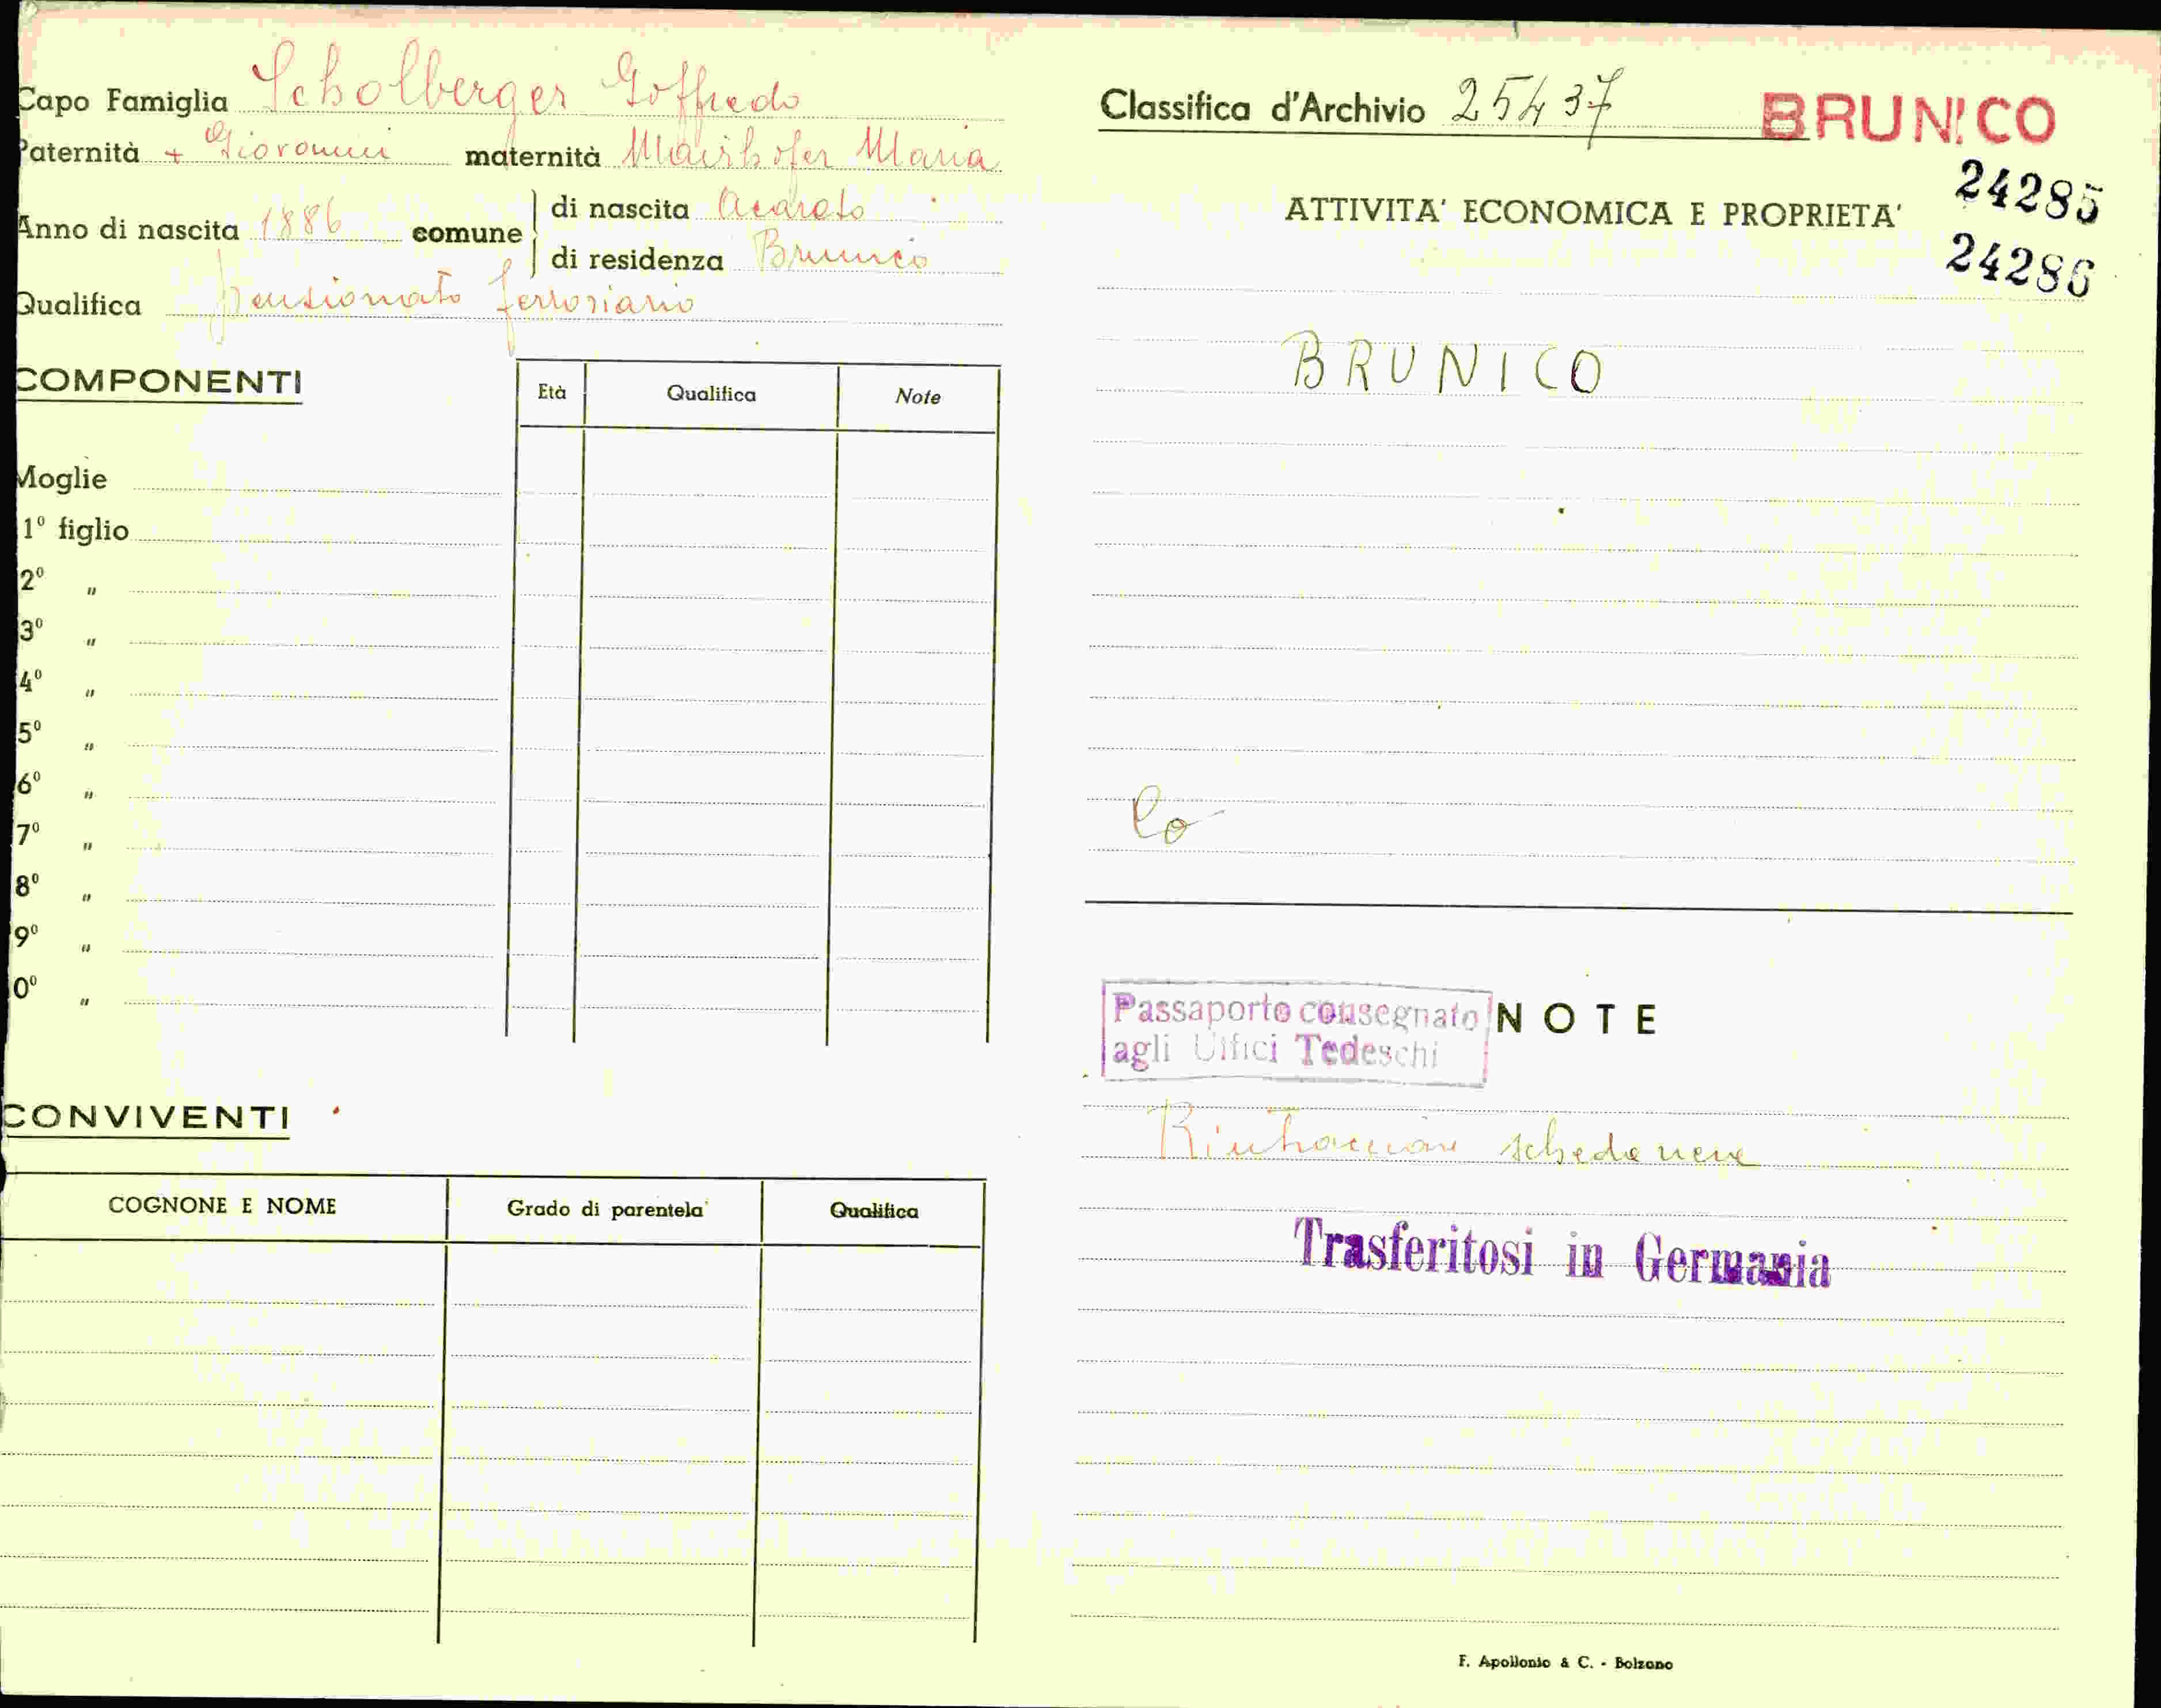 Capo Famiglia Scholberger Goffredo
Paternità + Giovanni maternità Mairhofer Maria
Anno di nascita 1886 comune di nascita Acereto
di residenza Brunico
Qualifica pensionato ferroviario
COMPONENTI
Età Qualifica Note
Moglie
1º figlio
2º "
3º "
4º "
5º "
6º "
7º "
8º "
9º "
0º "
CONVIVENTI
COGNONE E NOME Grado di parentela Qualifica
Classifica d'Archivio 25437 BRUNICO
24285
ATTIVITA' ECONOMICA E PROPRIETA'
24286
BRUNICO
Co
Passaporto consegnato
agli Uffici Tedeschi
NOTE
scheda
Trasferitosi in Germania
F. Apollonio & C. - Bolzano